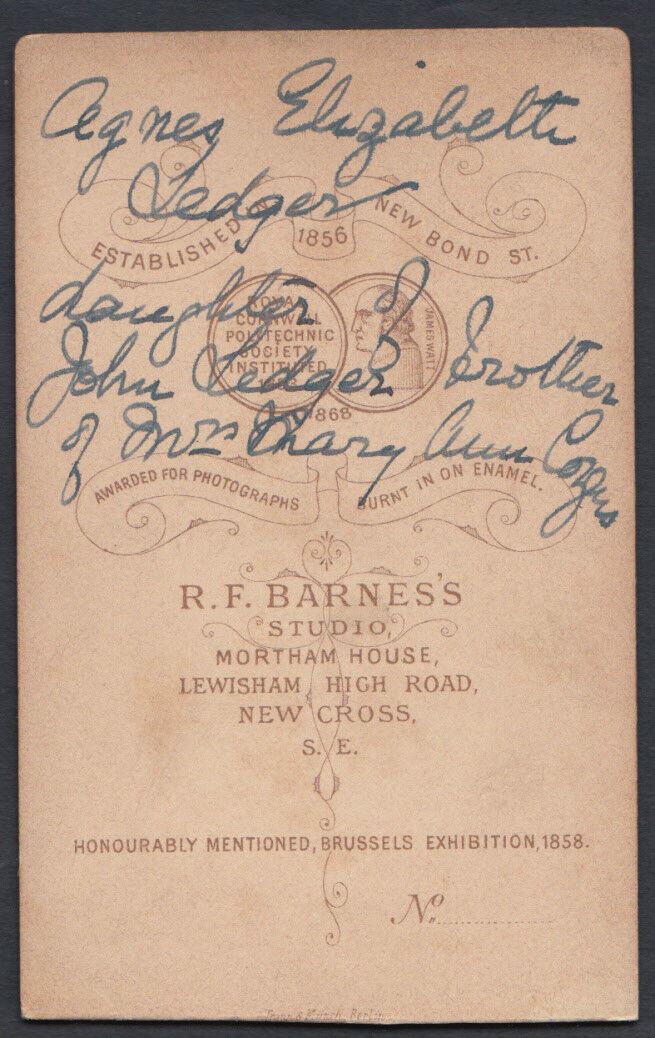 Agnes Elizabeth
Ledger
ESTABLISHED IN 1856 NEW BOND ST.
daughter of
ROYAL
CORNWALL
POLYTECHNIC
SOCIETY
INSTITUTED
JAMES WATT
John Ledger Brother
1868
of Mrs Mary Ann
AWARDED FOR PHOTOGRAPHS BURNT IN ON ENAMEL.
R. F. BARNES'S
STUDIO,
MORTHAM HOUSE,
LEWISHAM HIGH ROAD,
NEW CROSS,
S. E.
HONOURABLY MENTIONED, BRUSSELS EXHIBITION, 1858.
No.